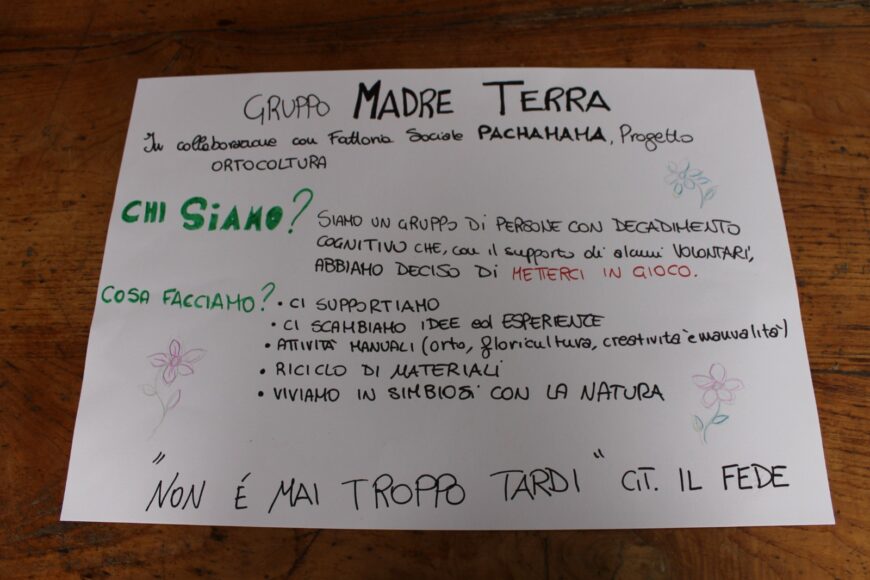 GRUPPO MADRE TERRA
In collaborazione con Fattoria Sociale PACHAMAMA, Progetto
ORTOCOLTURA
CHI SiAMO?
SIAMO UN GRUPPO DI PERSONE CON DECADIMENTO
COGNITIVO CHE, con il supporto di alcuni VOLONTARI,
ABBIAMO DECISO DI METTERCI IN GIOCO.
COSA FACCIAMO?
• CI SUPPORTIAMO
• CI SCAMBIAMO IDEE ed ESPERIENZE
• ATTIVITÀ MANUALI (orto, floricultura, creatività e manualità)
• RICICLO DI MATERIALI
• VIVIAMO IN SIMBIOSI CON LA NATURA
"NON É MAI TROPPO TARDI" CIT. IL FEDE